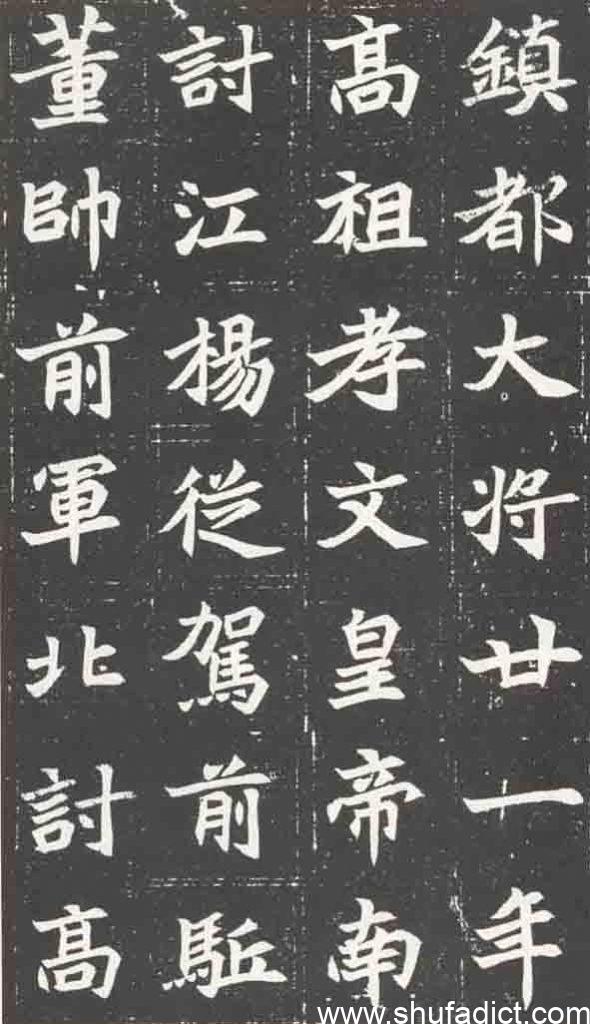 鎮都大将廿一年
髙祖孝文皇帝南
討江楊従駕前駈
董帥前軍北討髙
www.shufadict.com